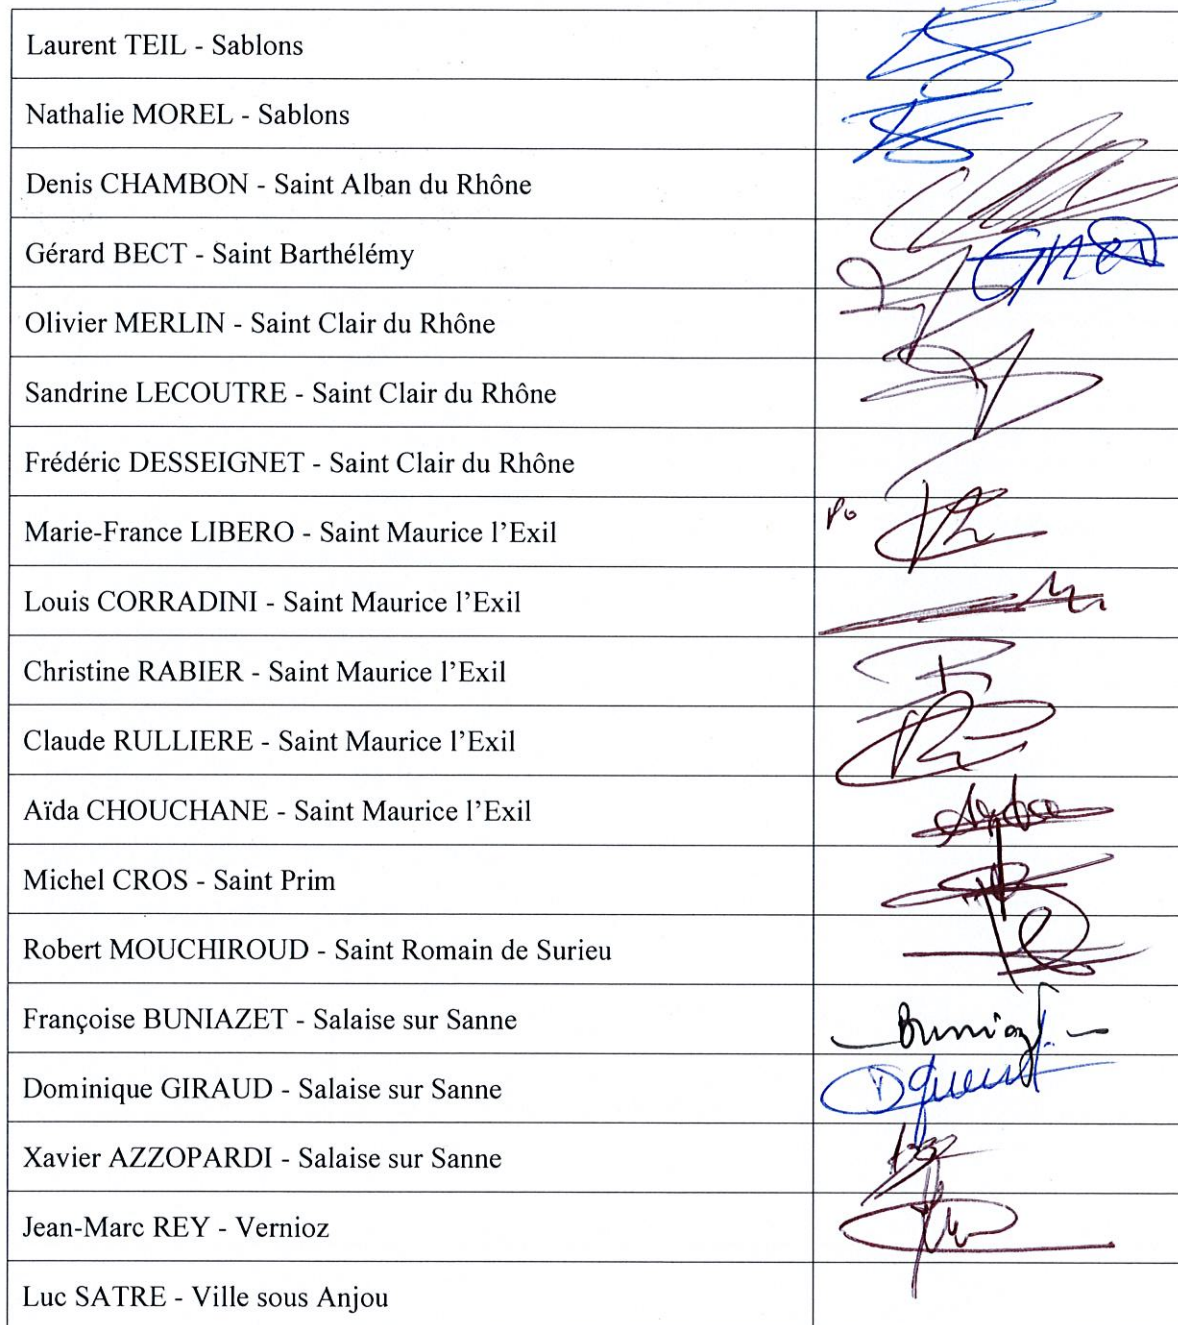 Laurent TEIL - Sablons
Nathalie MOREL - Sablons
Denis CHAMBON - Saint Alban du Rhône
Gérard BECT - Saint Barthélémy
Olivier MERLIN - Saint Clair du Rhône
Sandrine LECOUTRE - Saint Clair du Rhône
Frédéric DESSEIGNET - Saint Clair du Rhône
Marie-France LIBERO - Saint Maurice l'Exil
Po
Louis CORRADINI - Saint Maurice l'Exil
Christine RABIER - Saint Maurice l'Exil
Claude RULLIERE - Saint Maurice l'Exil
Aïda CHOUCHANE - Saint Maurice l'Exil
Michel CROS - Saint Prim
Robert MOUCHIROUD - Saint Romain de Surieu
Françoise BUNIAZET - Salaise sur Sanne
Dominique GIRAUD - Salaise sur Sanne
Xavier AZZOPARDI - Salaise sur Sanne
Jean-Marc REY - Vernioz
Luc SATRE - Ville sous Anjou